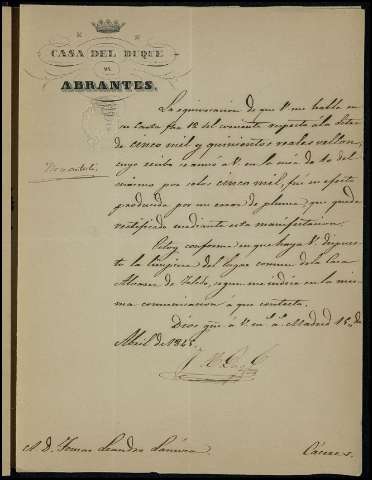 CASA DEL DUQUE
DE
ABRANTES.
La equivocacion de que V. me habla en
su Carta fha 12 del corriente respecto á la letra
de cinco mil y quinientos reales vellon,
cuyo recibo se avisó á V. en la mia de 10 del
mismo por solos cinco mil, fué en efecto
producida por un error de pluma, que queda
rectificado mediante esta manifestacion.
Estoy conforme en que haya V. dispues-
to la limpieza del lugar comun de la Casa
Alcazar de Toledo, segun me indica en la mis-
ma comunicacion á que contesta.
Dios que á V. m. a. Madrid 15 de
Abril de 1845.
A D. Tomas Leandro
Cáceres.